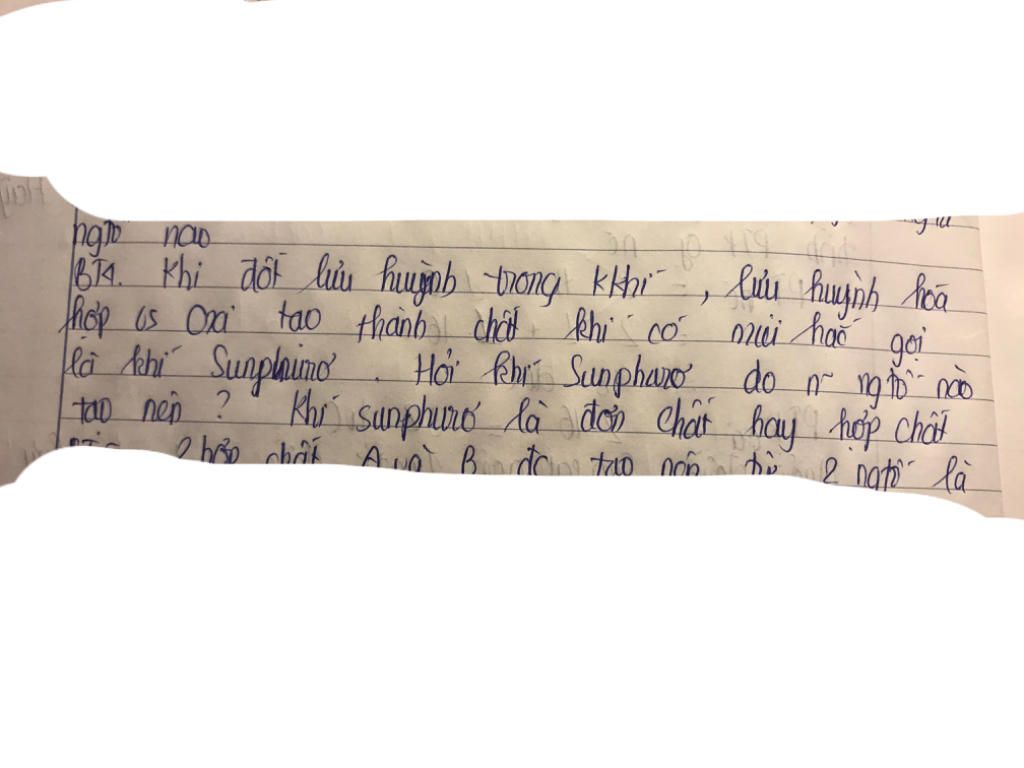 ngtố nào
BT4. Khi đốt lưu huỳnh trong kkhí, lưu huỳnh hoá
hợp vs Oxi tạo thành chất khí có mùi hắc gọi
là khí Sunphurơ. Hỏi khí Sunphurơ do n~ ngtố nào
tạo nên? Khí sunphurơ là đơn chất hay hợp chất
2 hợp chất A và B đc tạo nên từ 2 ngtố là